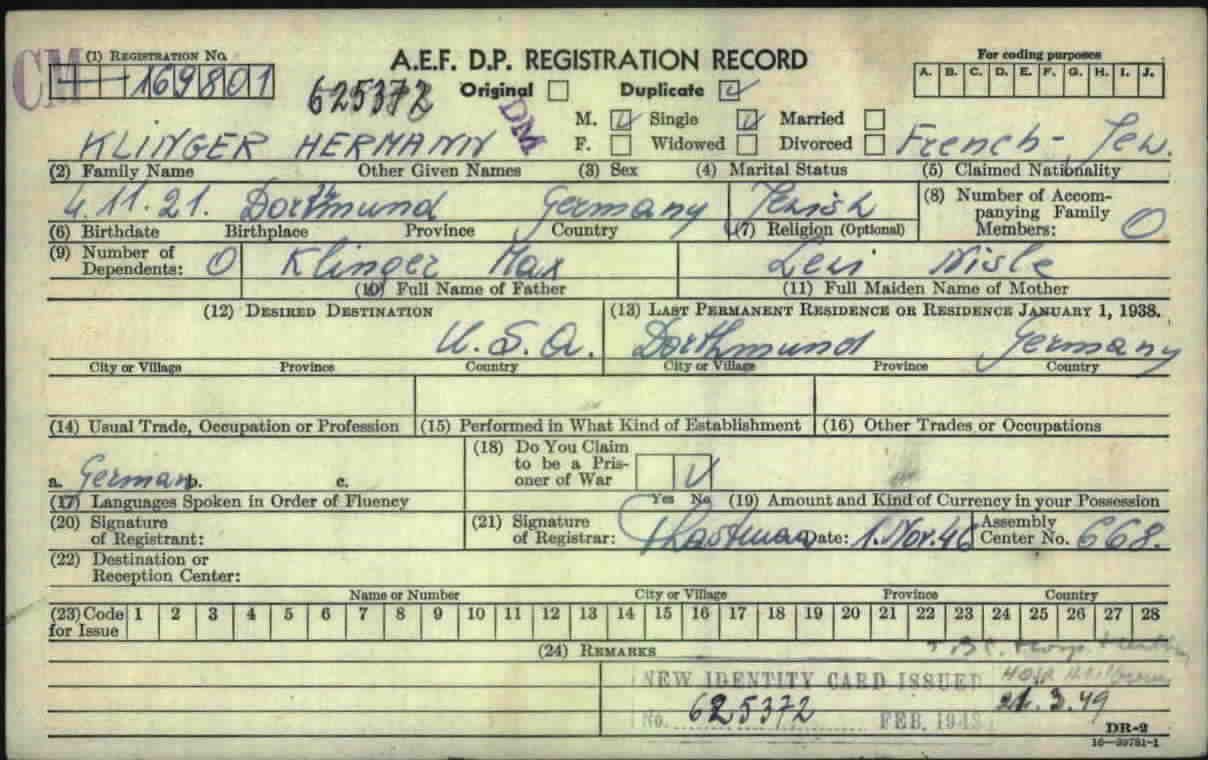 CM (1) REGISTRATION NO. A.E.F. D.P. REGISTRATION RECORD For coding purposes
169801 625372 Original Duplicate A. B. C. D. E. F. G. H. I. J.
DM
M. Single Married
KLINGER HERMANN F. Widowed Divorced French - Jew.
(2) Family Name Other Given Names (3) Sex (4) Marital Status (5) Claimed Nationality
4.11.21. Dorthmund Germany (8) Number of Accompanying Family Members: 0
(6) Birthdate Birthplace Province Country (7) Religion (Optional)
(9) Number of Dependents: 0 Klinger Max Levi
(10) Full Name of Father (11) Full Maiden Name of Mother
(12) DESIRED DESTINATION (13) LAST PERMANENT RESIDENCE OR RESIDENCE JANUARY 1, 1938.
U.S.A. Dorthmund Germany
City or Village Province Country City or Village Province Country
(14) Usual Trade, Occupation or Profession (15) Performed in What Kind of Establishment (16) Other Trades or Occupations
(18) Do You Claim to be a Prisoner of War
a. German b. c.
(17) Languages Spoken in Order of Fluency Yes No (19) Amount and Kind of Currency in your Possession
(20) Signature of Registrant: (21) Signature of Registrar: Date: 1. Nov. 46 Assembly Center No. 668.
(22) Destination or Reception Center:
Name or Number City or Village Province Country
(23) Code for Issue 1 2 3 4 5 6 7 8 9 10 11 12 13 14 15 16 17 18 19 20 21 22 23 24 25 26 27 28
(24) REMARKS
NEW IDENTITY CARD ISSUED
No. 625372 FEB. 1948 21.3.49
DR-2
16—39781-1